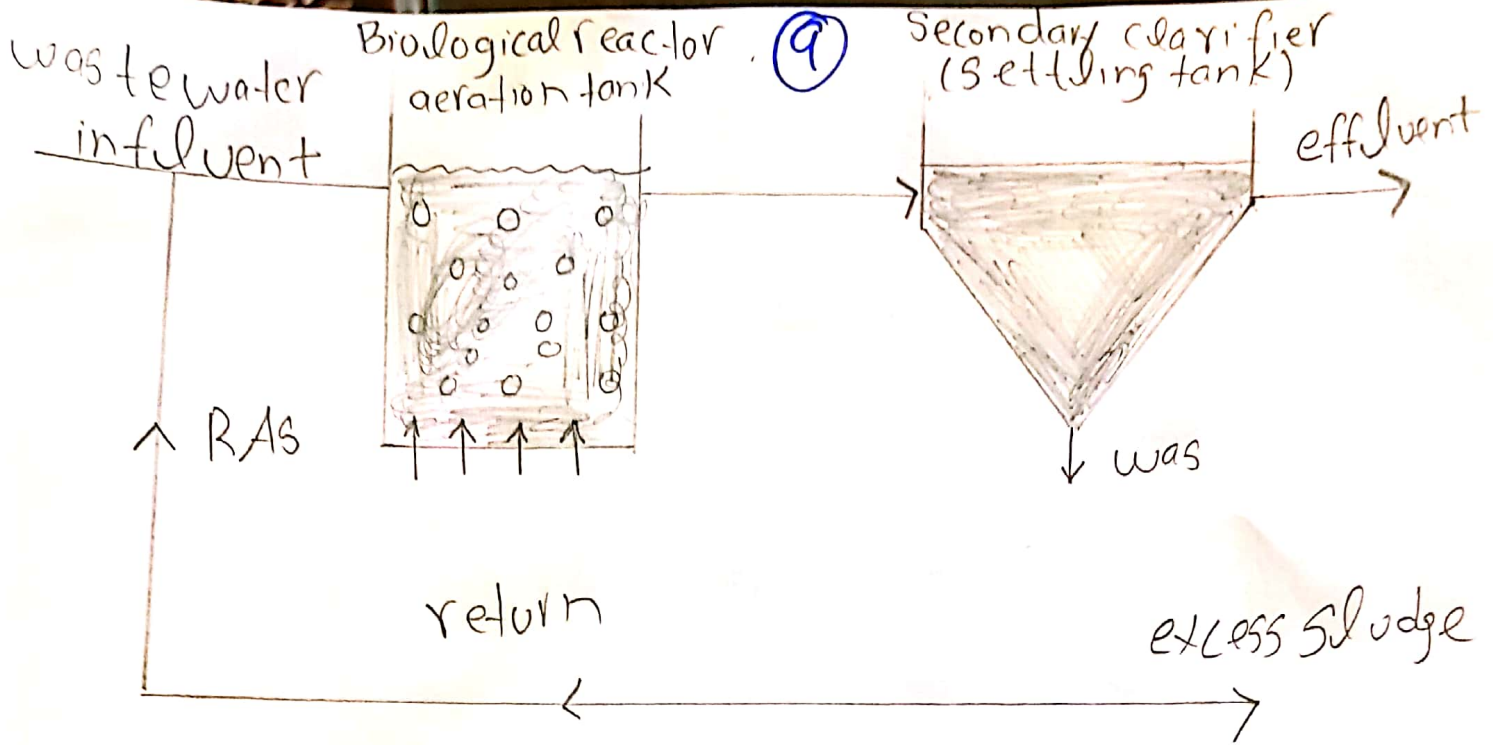 wastewater
influent
Biological reactor
aeration tank
9
Secondary clarifier
(Settling tank)
effluent
RAS
was
return
excess sludge